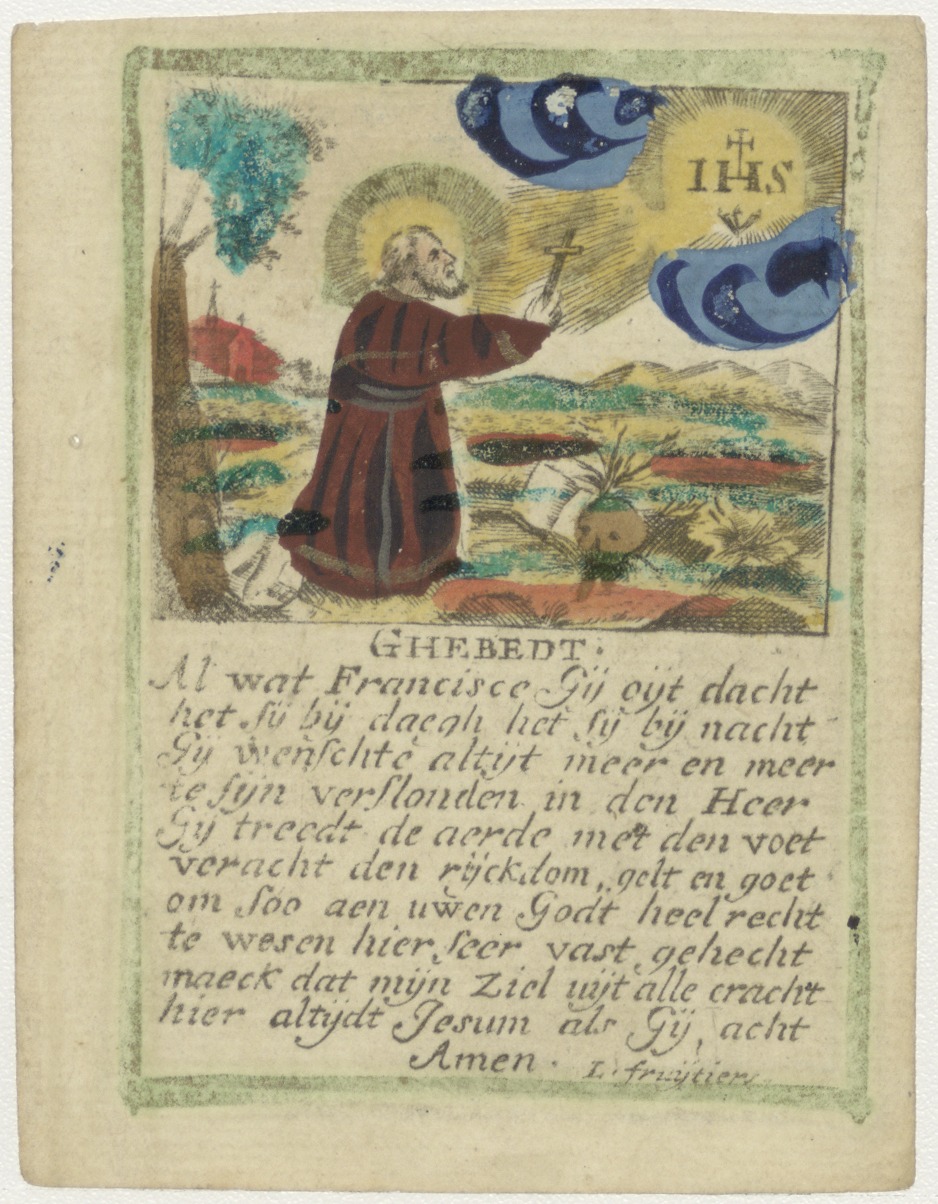 IHS
GHEBEDT.
Al wat Francisce Gij oijt dacht
het sij bij daegh het sij bij nacht
Gij wenschte altijt meer en meer
te sijn verslonden in den Heer
Gij treedt de aerde met den voet
veracht den rijckdom, gelt en goet
om soo aen uwen Godt heel recht
te wesen hier seer vast gehecht
maeck dat mijn Ziel uijt alle cracht
hier altijdt Jesum als Gij acht
Amen.
L. fruijtiers